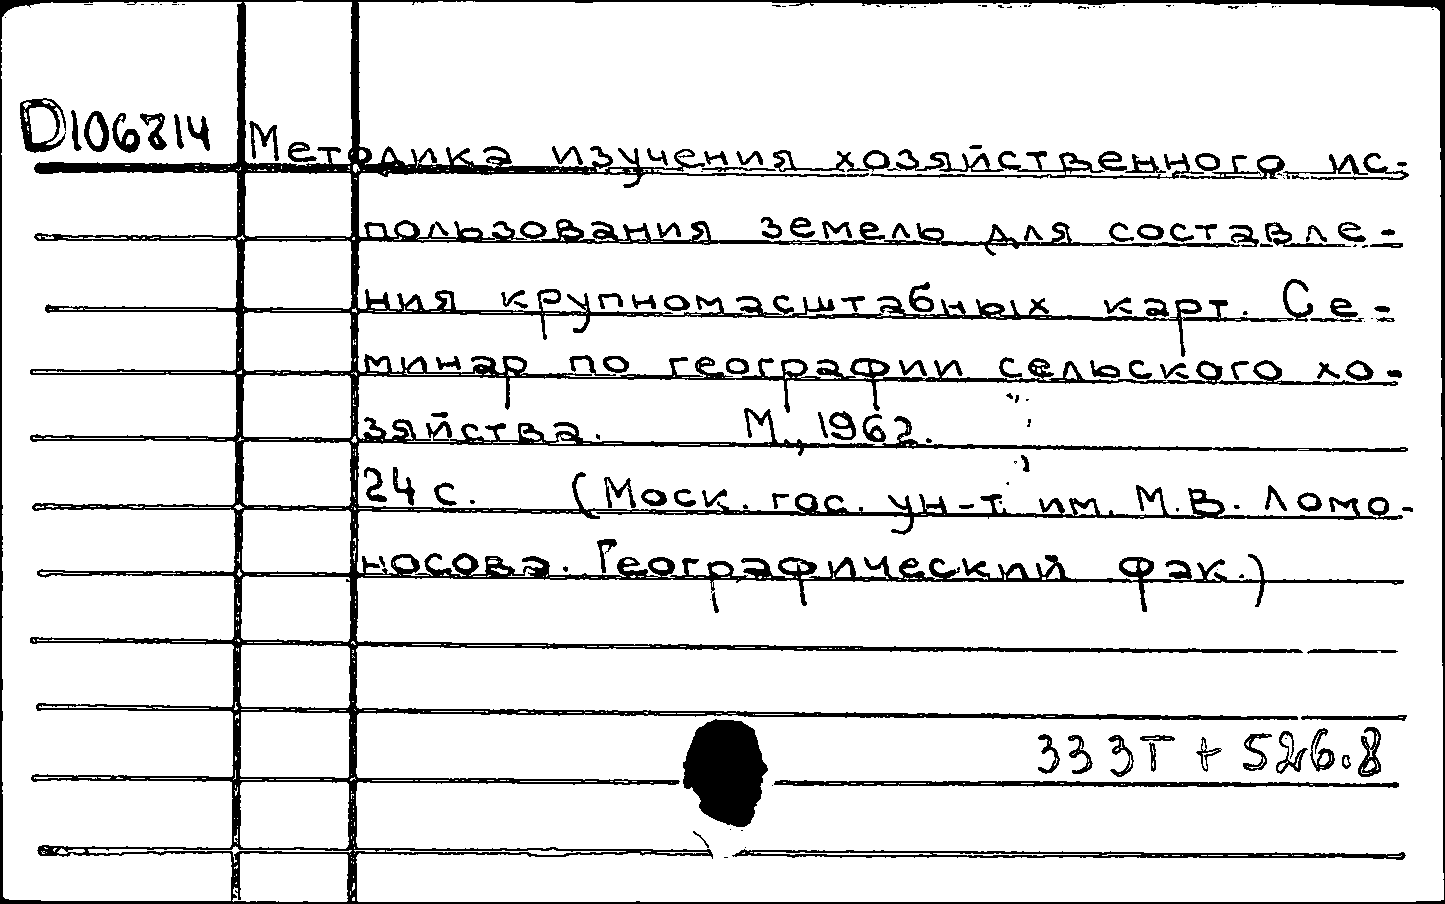 D106814 Методика изучения хозяйственного ис-
пользования земель для составле-
ния крупномасштабных карт. Се-
минар по географии сельского хо-
зяйства. М., 1962.
24 с. (Моск. гос. ун-т. им. М.В. Ломо-
носова. Географический фак.)
333Т + 526.8